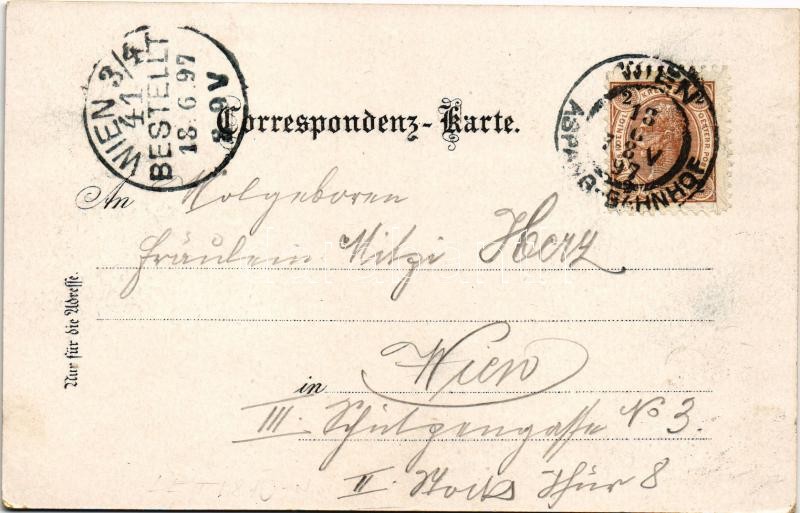 WIEN 3/4
41
BESTELLT
18.6.97
8-9V
WIEN
ASPANG-BAHNHOF
Correspondenz-Karte.
An Wolgeboren
Fräulein Mitzi Herz
in Wien
III. Schützengasse No 3.
II. Stock Thür 8
Nur für die Adresse.